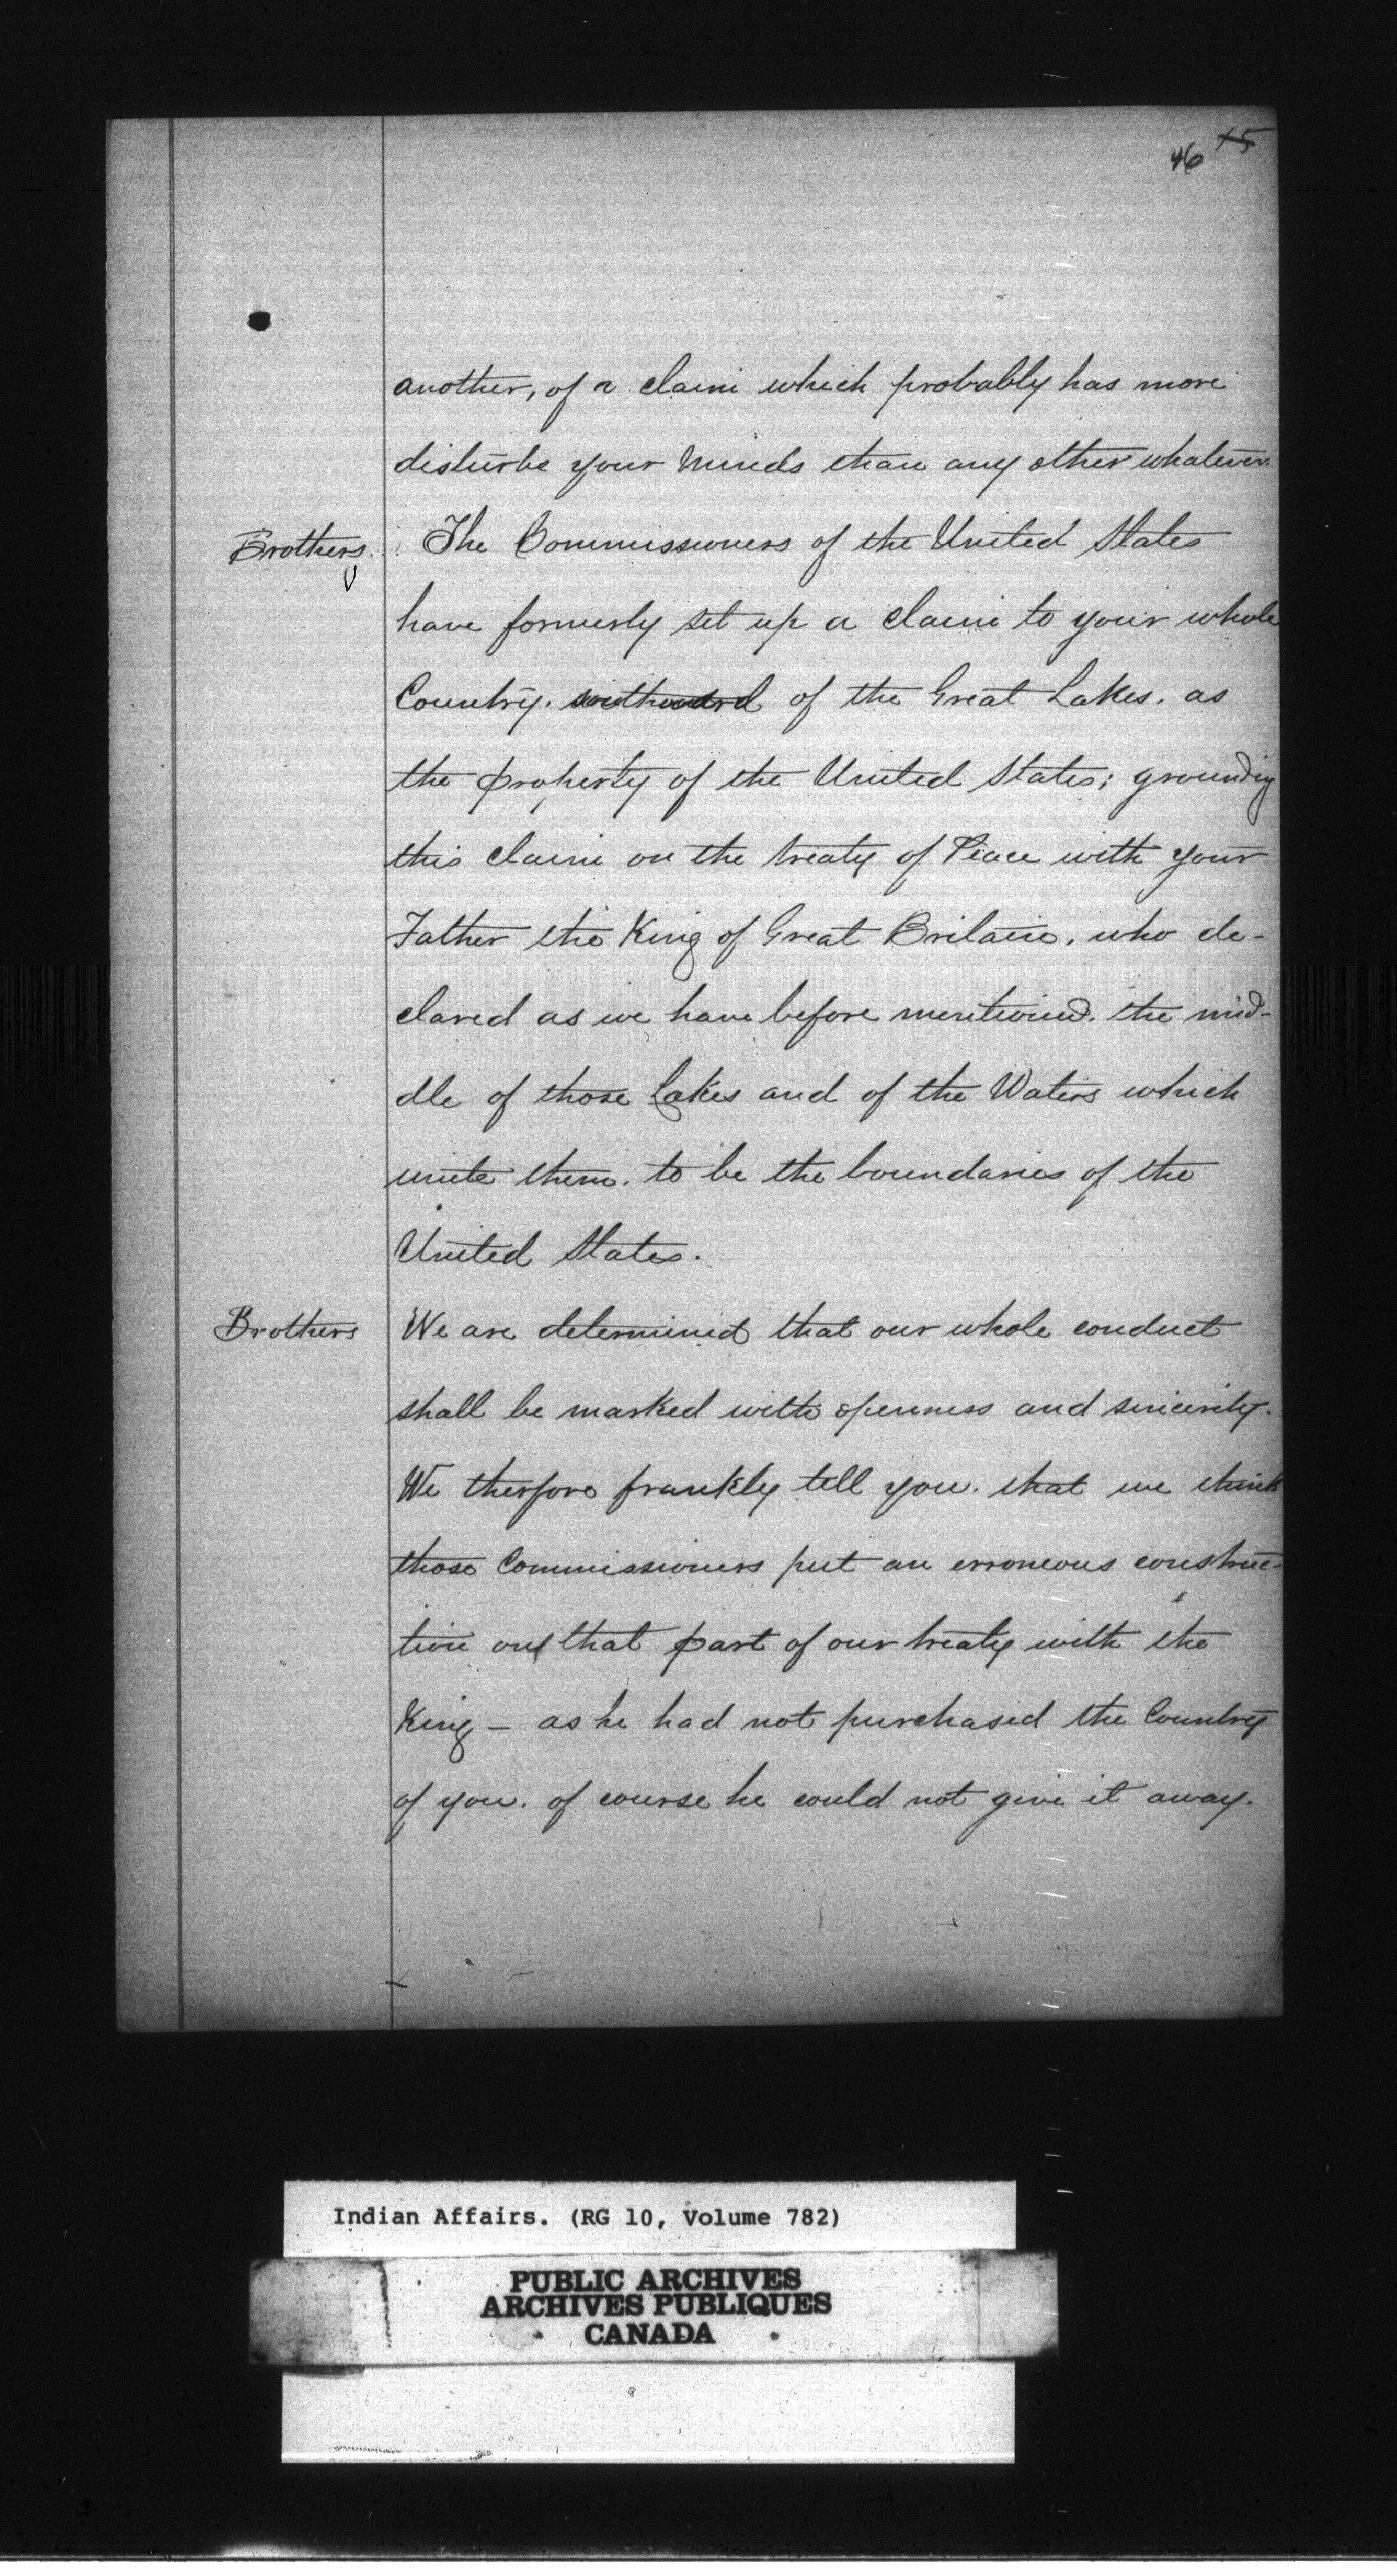 46 45
another, of a claim which probably has more
disturbe your Minds than any other whatever.
Brothers. The Commissioners of the United States
have formerly set up a claim to your whole
Country. southward of the Great Lakes. as
the property of the United States; grounding
this claim on the treaty of Peace with your
Father the King of Great Britain. who de-
clared as we have before mentioned. the mid-
dle of those Lakes and of the Waters which
unite them. to be the boundaries of the
United States.
Brothers We are determined that our whole conduct
shall be marked with openness and sincerity.
We therfore frankly tell you. that we think
those Commissioners put an erroneous construc-
tion on that part of our treaty with the
King — as he had not purchased the Country
of you. of course he could not give it away.
Indian Affairs. (RG 10, Volume 782)
PUBLIC ARCHIVES
ARCHIVES PUBLIQUES
CANADA